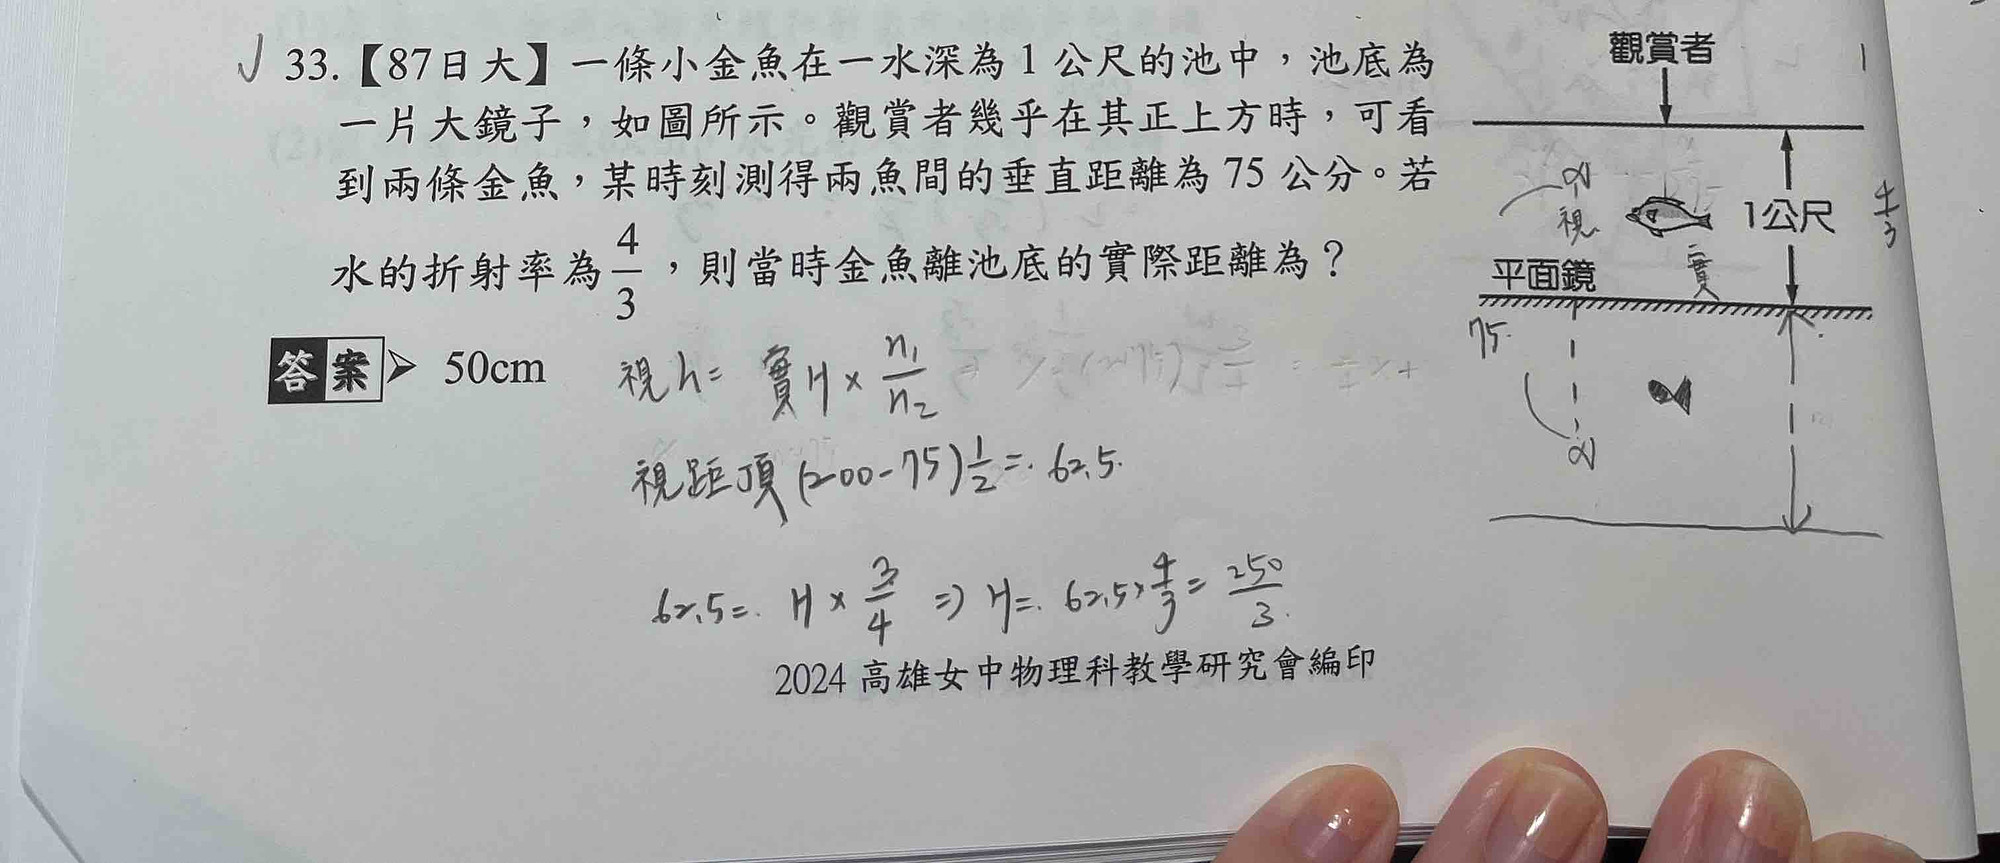 33.【87日大】一條小金魚在一水深為 1 公尺的池中，池底為
一片大鏡子，如圖所示。觀賞者幾乎在其正上方時，可看
到兩條金魚，某時刻測得兩魚間的垂直距離為 75 公分。若
水的折射率為 4/3 ，則當時金魚離池底的實際距離為？
答案 ➢ 50cm
視 h = 實 H × n1/n2
視距頂 (200-75) 1/2 = 62.5
62.5 = H × 3/4 ⇒ H = 62.5 × 4/3 = 250/3
2024 高雄女中物理科教學研究會編印
觀賞者
視
1公尺
4/3
實
平面鏡
75